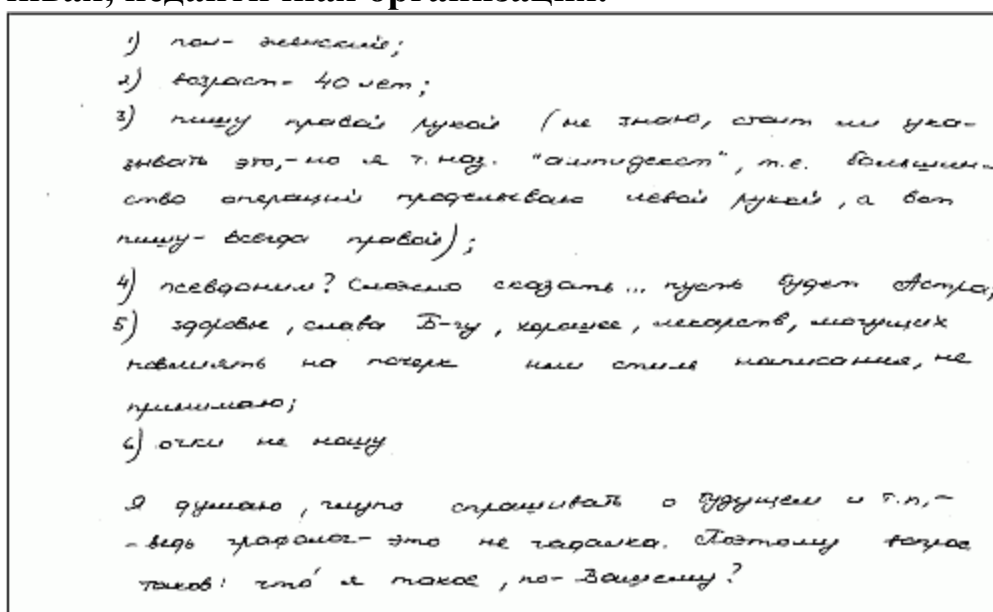 ивая, педантичная организация.
1) пол- женский;
2) возраст- 40 лет;
3) пишу правой рукой (не знаю, стоит ли ука-
зывать это,- но я т. наз. "амтидекст", т.е. большин-
ство операций проделываю левой рукой, а вот
пишу- всегда правой);
4) псевдоним? Сложно сказать... пусть будет Астра;
5) здоровье, слава Б-гу, хорошее, лекарств, могущих
повлиять на почерк или стиль написания, не
принимаю;
6) очки не ношу
Я думаю, глупо спрашивать о будущем и т.п,-
- ведь графолог- это не гадалка. Поэтому вопрос
таков: что́ я такое, по- Вашему?